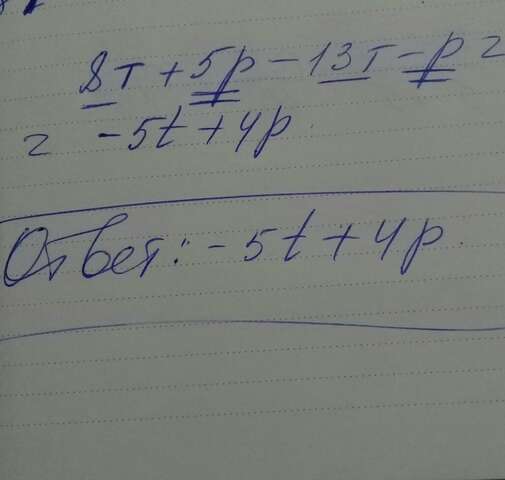 8т + 5p - 13т - p =
= -5t + 4p
Ответ: -5t + 4p.